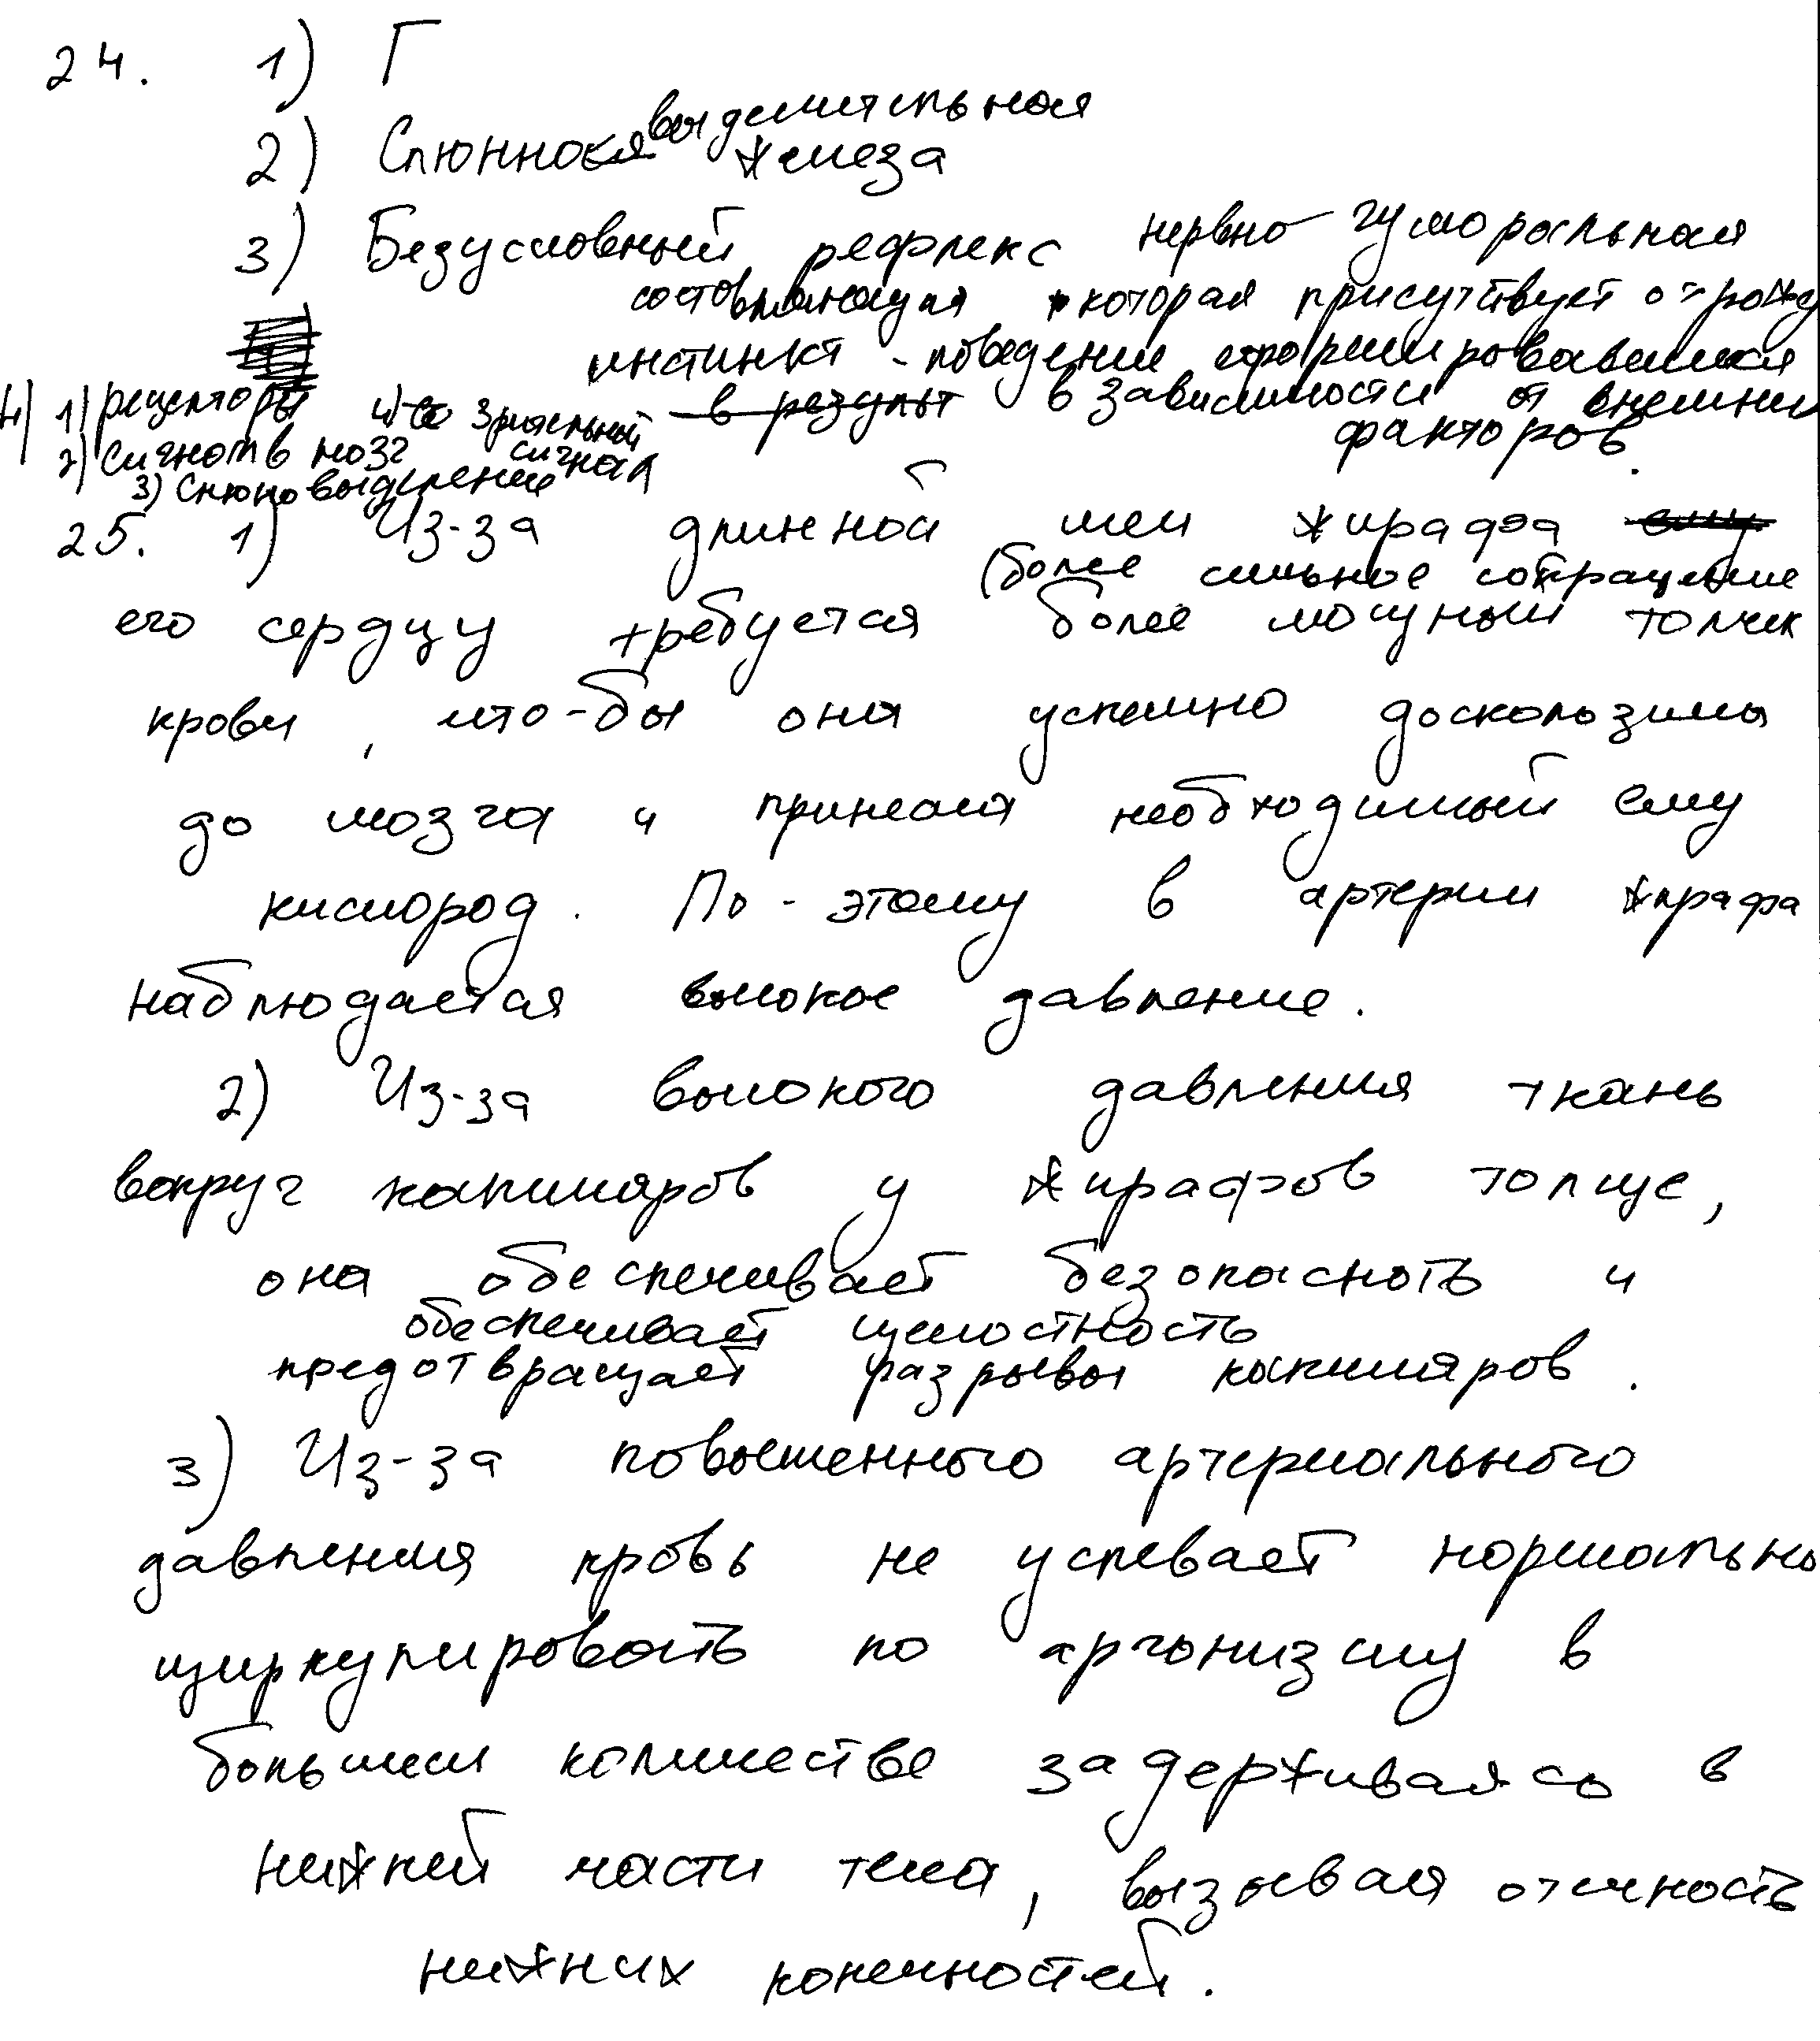 24. 1) Г
выделительная
2) Слюнная железа
3) Безусловный рефлекс нервно гуморальная
состовляющая которая присутствует от рожд
инстинкт - поведение сформировавшиеся
4) 1) рецепторы 4) зрительный в результ в зависимости от внешних
2) сигнал в мозг сигнал факторов.
3) слюновыделение
25. 1) Из-за длинной шеи жирафа
(более сильное сокращение
его сердцу требуется более мощный толчек
крови, что-бы она успешно доскользила
до мозга и принесла необходимый ему
кислород. По-этому в артерии жирафа
наблюдается высокое давление.
2) Из-за высокого давления ткань
вокруг капиляров у жирафов толще,
она обеспечивает безопасность и
обеспечивает целостность
предотвращает разрывы капиляров.
3) Из-за повышенного артериального
давления кровь не успевает нормально
циркулировать по арганизму в
большем количестве задерживаясь в
нижней части тела, вызывая отечность
нижних конечностей.